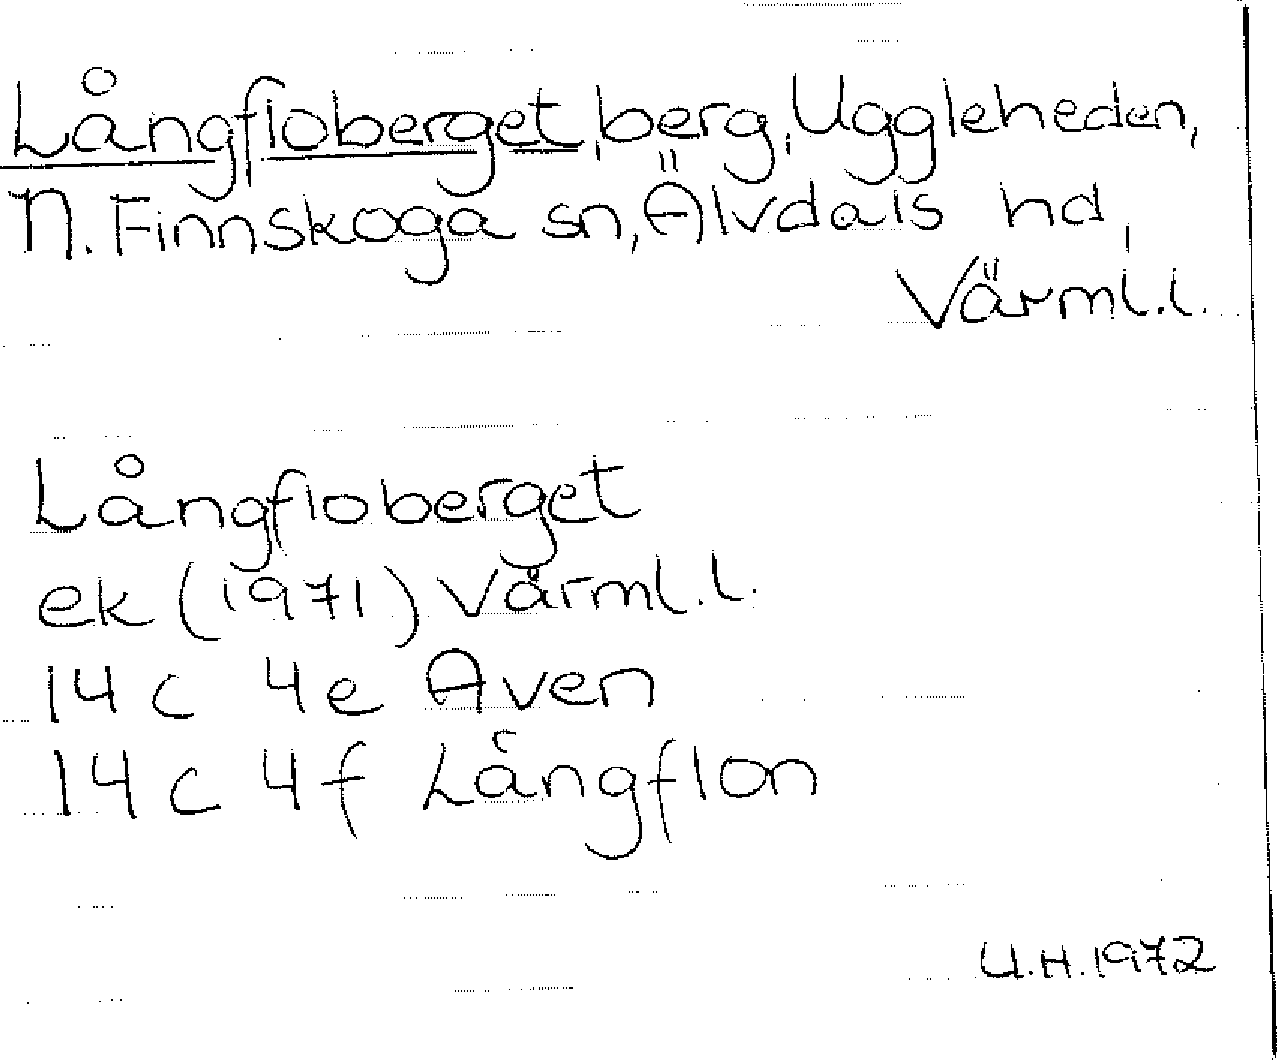 Långfloberget, berg, Uggleheden,
N. Finnskoga sn, Älvdals hd,
Värml.l.
Långfloberget
ek (1971) Värml.l.
14c 4e Aven
14c 4f Långflon
U.H. 1972